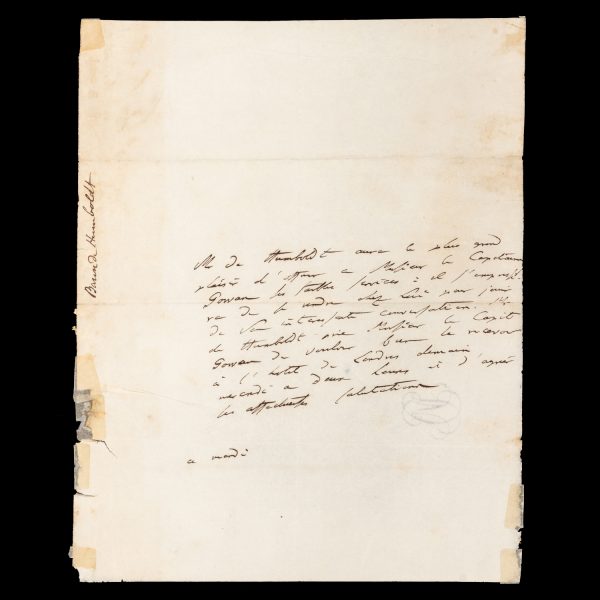 M de Humboldt aura le plus grand
plaisir d'offrir à Monsieur le Capitaine
Gowan ses faibles services: il s'empresse
ra de se rendre chez Lui pour jouir
de Son intéressante conversation. Mr
de Humboldt prie Monsieur le Capit
Gowan de vouloir bien le recevoir
à l'hotel de Londres demain
mercredi a deux heures et d'agréer
les affectueuses salutations
ce mardi
Baron de Humboldt